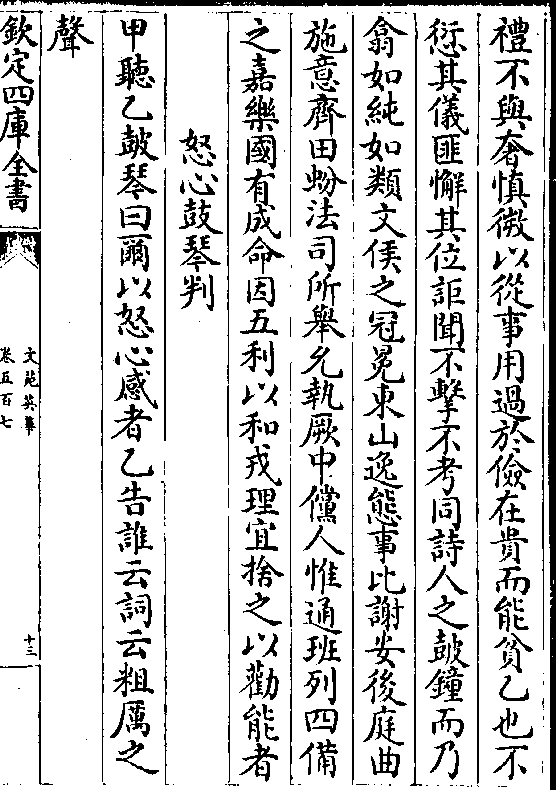 禮不與奢慎微以從事用過於儉在貴而能貧乙也不
愆其儀匪懈其位詎聞不擊不考同詩人之鼓鐘而乃
翕如純如類文侯之冠冕東山逸態事比謝安後庭曲
施意齊田蚡法司所舉允執厥中儻人惟通班列四備
之嘉樂國有成命因五利以和戎理宜捨之以勸能者
怒心鼓琴判
甲聽乙鼓琴曰爾以怒心感者乙告誰云詞云粗厲之
聲
欽定四庫全書
文苑英華
卷五百七
十三